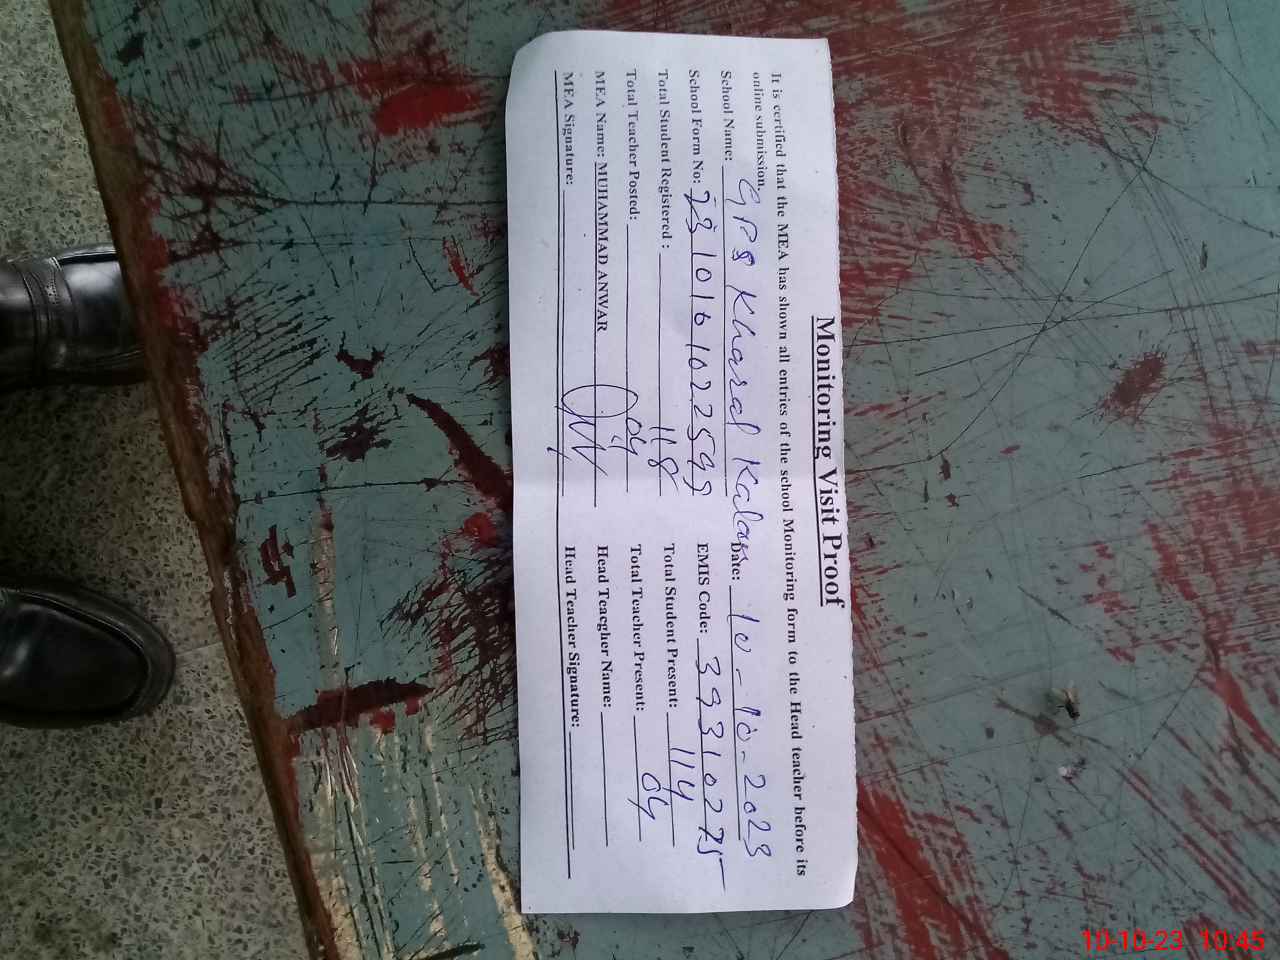 Monitoring Visit Proof
It is certified that the MEA has shown all entries of the school Monitoring form to the Head teacher before its
online submission.
School Name: GPS Kharal Kalan Date: 10-10-2023
School Form No: 2310161022599 EMIS Code: 39310275
Total Student Registered : 118 Total Student Present: 114
Total Teacher Posted: 04 Total Teacher Present: 04
MEA Name: MUHAMMAD ANWAR Head Teacgher Name:
MEA Signature: Head Teacher Signature:
10-10-23 10:45